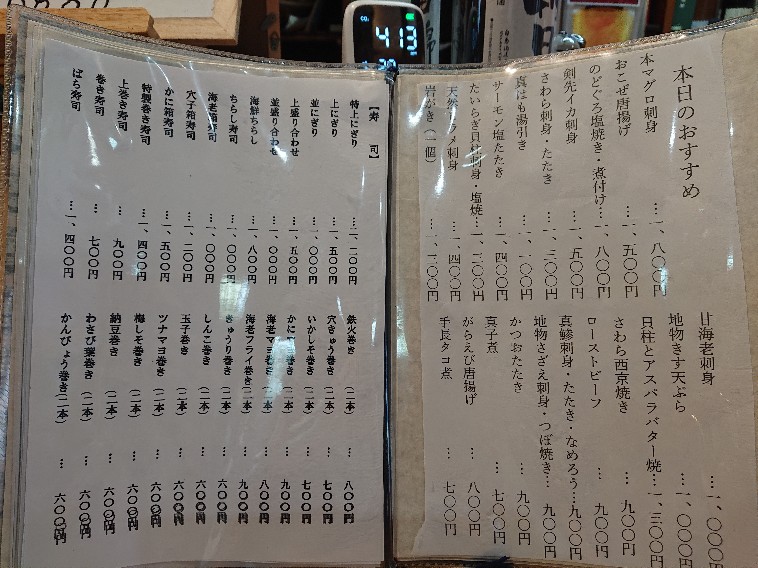 413
本日のおすすめ
本マグロ刺身 … 一、八〇〇円
おこぜ唐揚げ … 一、五〇〇円
のどぐろ塩焼き・煮付け… 一、八〇〇円
剣先イカ刺身 … 一、五〇〇円
さわら刺身・たたき … 一、三〇〇円
真はも湯引き … 一、一〇〇円
サーモン塩たたき … 一、二〇〇円
たいらぎ貝柱刺身・塩焼… 一、三〇〇円
天然ヒラメ刺身 … 一、四〇〇円
岩がき(一個) … 一、三〇〇円
甘海老刺身 … 一、〇〇〇円
地物きす天ぷら … 一、〇〇〇円
貝柱とアスパラバター焼… 一、三〇〇円
さわら西京焼き … 九〇〇円
ローストビーフ … 九〇〇円
真鯵刺身・たたき・なめろう… 九〇〇円
地物さざえ刺身・つぼ焼き… 九〇〇円
かつおたたき … 九〇〇円
真子煮 … 七〇〇円
がらえび唐揚げ … 八〇〇円
手長タコ煮 … 七〇〇円
【寿 司】
特上にぎり … 二、二〇〇円
上にぎり … 一、五〇〇円
並にぎり … 一、〇〇〇円
上盛り合わせ … 一、五〇〇円
並盛り合わせ … 一、〇〇〇円
海鮮ちらし … 一、八〇〇円
ちらし寿司 … 一、〇〇〇円
海老箱寿司 … 一、〇〇〇円
穴子箱寿司 … 一、二〇〇円
かに箱寿司 … 一、五〇〇円
特製巻き寿司 … 一、四〇〇円
上巻き寿司 … 九〇〇円
巻き寿司 … 七〇〇円
ばち寿司 … 一、四〇〇円
鉄火巻き (二本) … 八〇〇円
穴きゅう巻き (二本) … 七〇〇円
いかしそ巻き (二本) … 七〇〇円
かに 巻き (二本) … 九〇〇円
海老マヨ巻き (二本) … 八〇〇円
海老フライ巻き(二本) … 九〇〇円
きゅうり巻き (二本) … 六〇〇円
しんこ巻き (二本) … 六〇〇円
玉子巻き (二本) … 六〇〇円
ツナマヨ巻き (二本) … 六〇〇円
梅しそ巻き (二本) … 六〇〇円
納豆巻き (二本) … 六〇〇円
わさび葉巻き (二本) … 六〇〇円
かんぴょう巻き(二本) … 六〇〇円